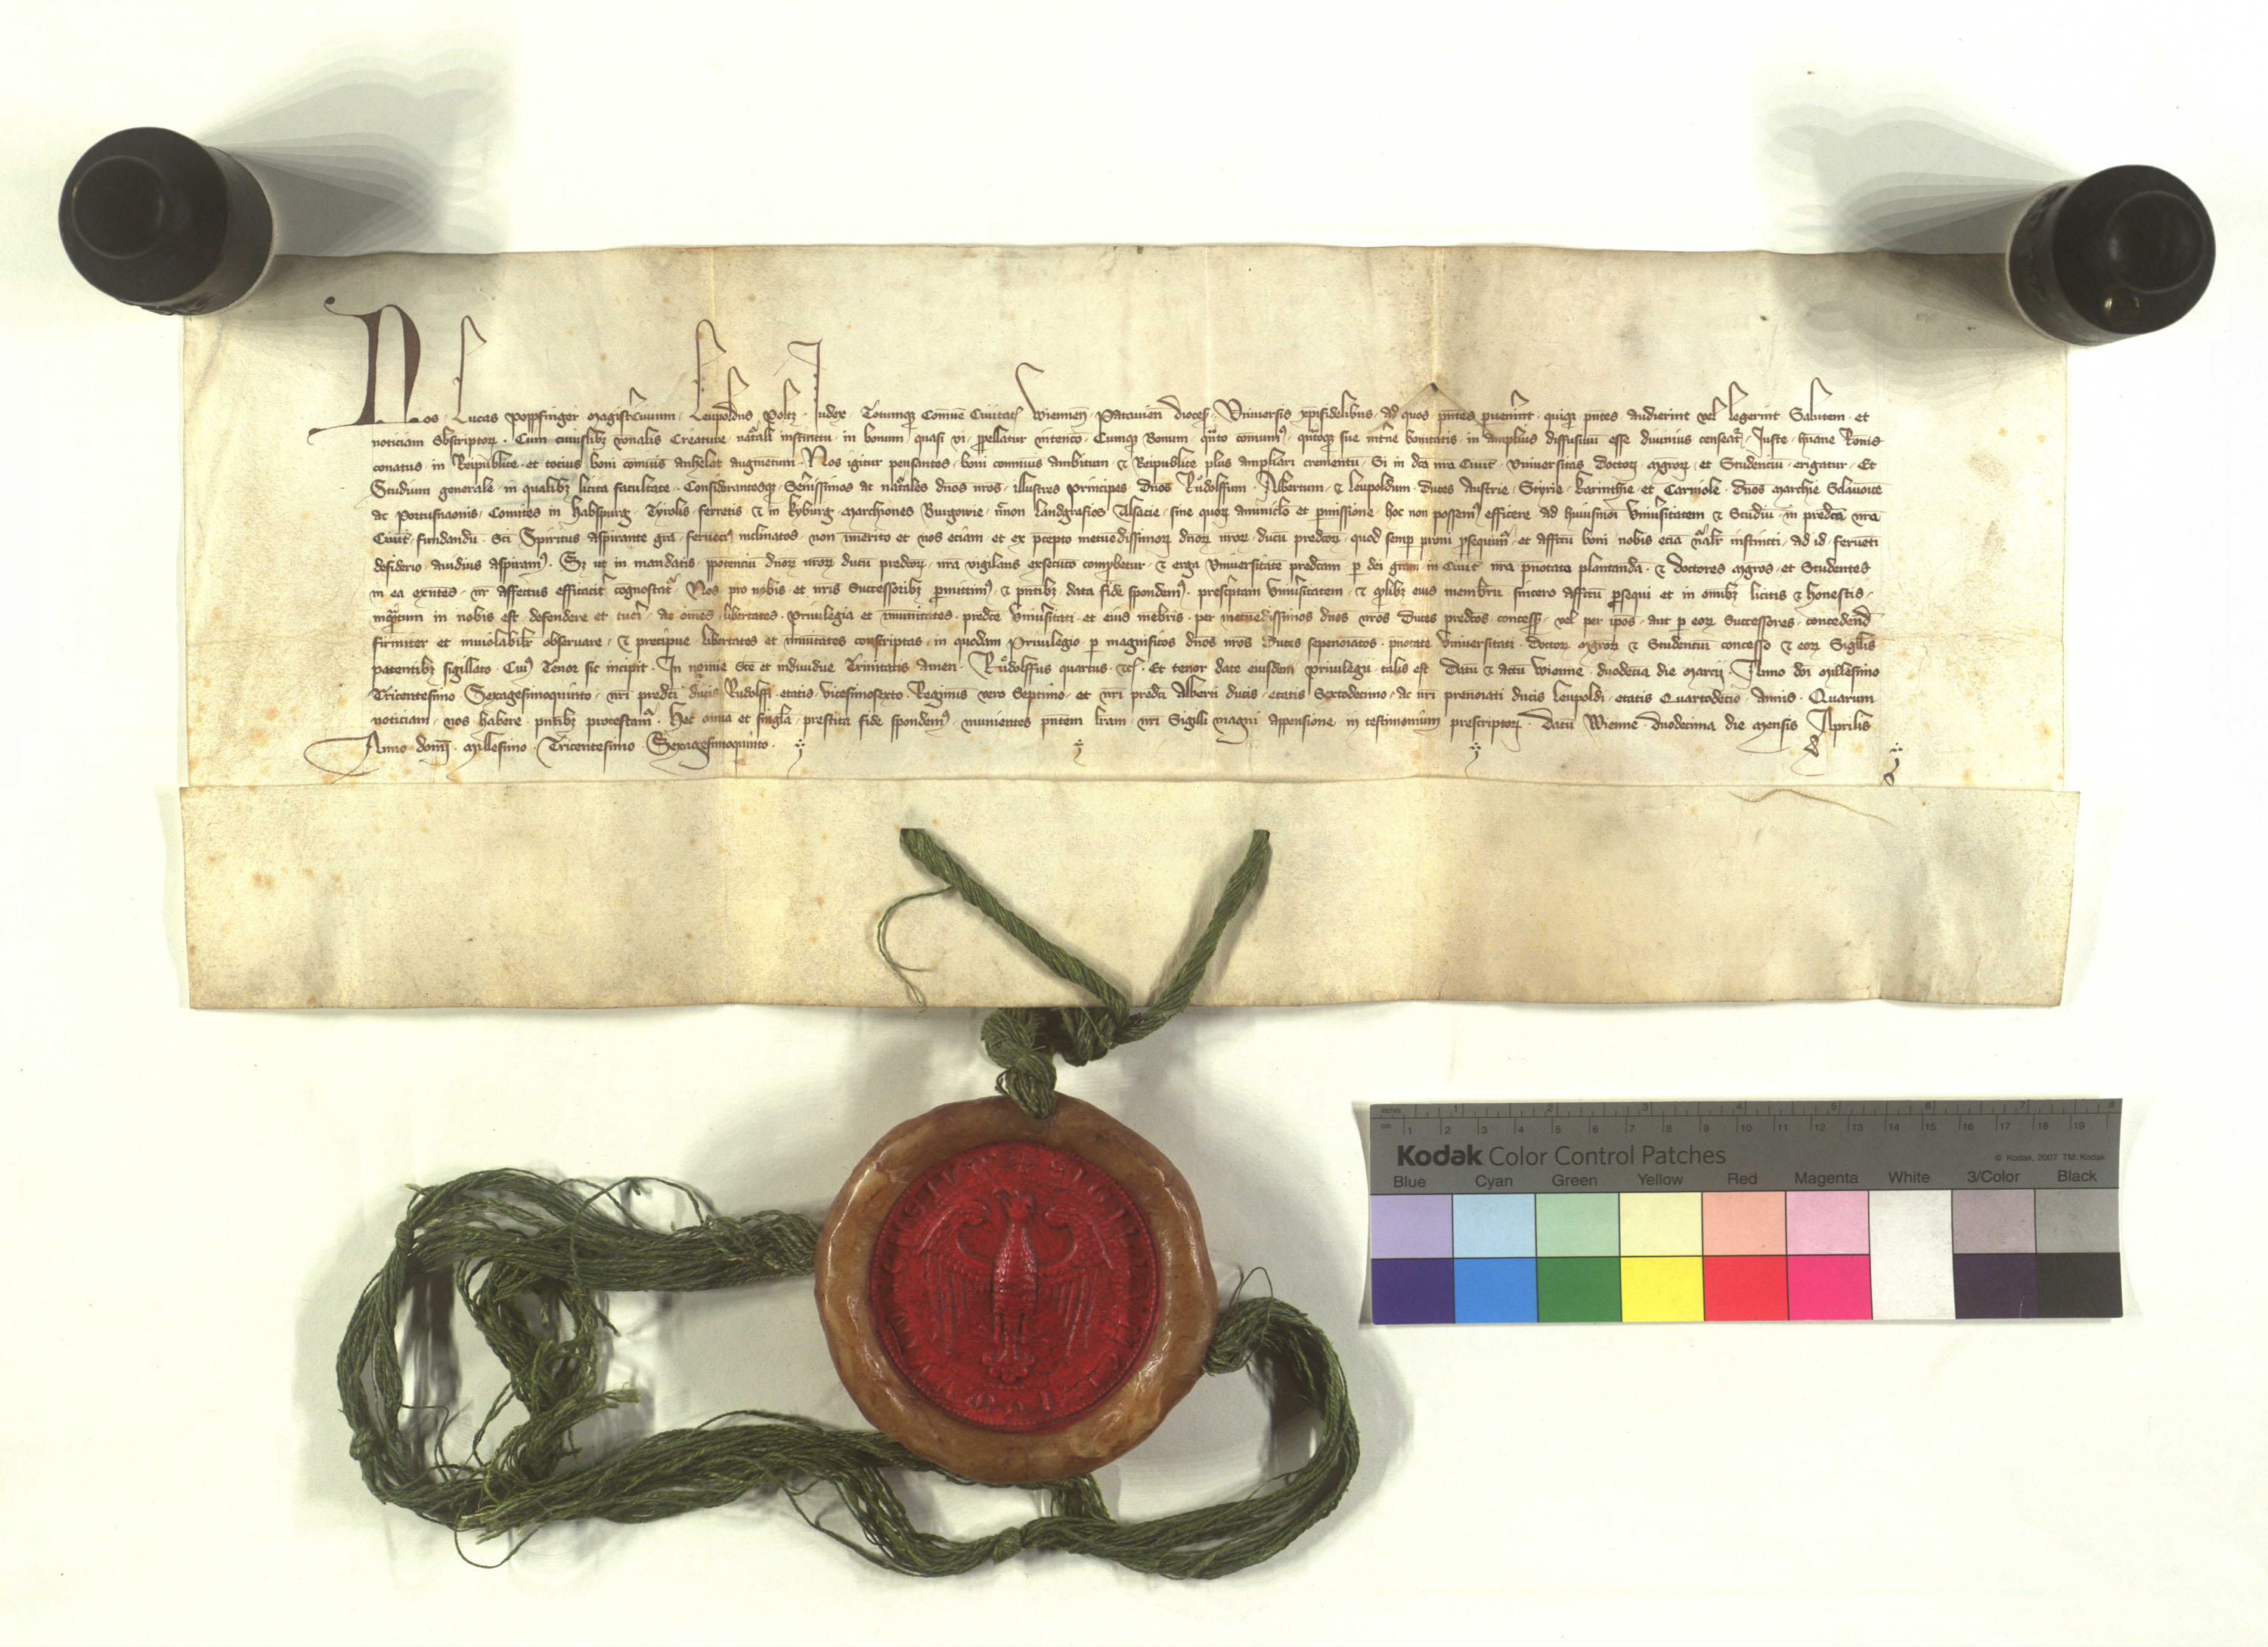 Nos Lucas Popphinger Magistercivium Leupoldus Poltz Iudex Totumq Comune Civitatis Wiennen Patavien dioces Universis xpifidelibus ad quos pntes pvenerint quiq pntes audierint vel legerint Salutem et
noticiam Sbscriptor Cum cuiuslibz Creature instinctu in bonum quasi vi ppellatur intento Cumq Bonum sue bonitatis in amplius diffusivum esse divinius censeat Iuste huane Ronis
conatus in Reipublice et tocius boni comunis anhelat augmetum Nos igitur pensantes boni comunis ambitum & Reipublice plus ampliari crementu Si in dca nra Civit Universitas doctor mgror et Studenciu erigatur Et
Studium generale in qualibz licita facultate Considerantesq Serenissimos ac nales dnos nros illustres principes dnos Rudolffum Albertum & Leupoldum duces Austrie Styrie Karinthie et Carniole dnos marchie Sclavoie
ac Portusnaonis Comites in Habspurg Tyrolis ferretis & in Kyburg Marchiones Burgowie nnon landgrafios Alsacie sine quor aminiclo et pmissione hoc non possem efficere ad huiusmoi Universitatem & Studiu in predca nra
Civit fundandu Sci Spiritus aspirante gra inclinatos non imerito et nos eciam et ex pcepto metuedissimor dnor nror ducu predcor quod semp proni psequim et affcu boni nobis ecia instincti ad id ferveti
desiderio avidius aspiram Sz ut in mandatis ppotenciu dnor nror ducu predcor nra vigilans exsecuto & erga Universitate predcam p dei gram in Civit nra pnotata plantanda & doctores mgros et Studentes
in ea exntes nr affectus efficacit cognoscat Nos pro nobis et nris Successoribz pmittim & pntibz data fide spondem prescptam Universitatem & qlibz eius membru sincero affcu psequi et in omibz licitis & honestis
inqtum in nobis est defendere et tueri ac omes libertates privilegia et imunitates predce Universitati et eius mebris per metuedissimos dnos nros Duces predcos concess vel per ipos aut p eor Successores concedend
firmiter et inviolabilr observare & precipue libertates et imuitates conscriptas in quodam Privilegio p magnificos dnos nros Duces sepenoiatos pnotate Universitati doctor mgror & Studentiu concesso & eor Sigillis
patentibz sigillato Cui Tenor sic incipit In noie Sce et individue Trinitatis Amen Rudolffus quartus &c Et tenor date eiusdem privilegii talis est Datu & actu Wienne duodecia die Marcii Anno dni Millesimo
Tricentesimo Sexagesimoquinto nri predci ducis Rudolffi etatis vicesimosexto Regiminis vero Septimo et nri predci Alberti ducis etatis Sextodecimo ac nri prenoiati ducis Leupoldi etatis Quartodecio annis Quarum
noticiam nos habere pntibz protestam Hec omia et singla prestita fide spondem munientes pntem lram nri Sigilli magni appensione in testimonium prescriptor Datu Wienne duodecima die mensis Aprilis
Anno domi Millesimo Tricentesimo Sexagesimoquinto
inches 1 2 3 4 5 6 7 8
cm 1 2 3 4 5 6 7 8 9 10 11 12 13 14 15 16 17 18 19
Kodak Color Control Patches © Kodak, 2007 TM: Kodak
Blue Cyan Green Yellow Red Magenta White 3/Color Black